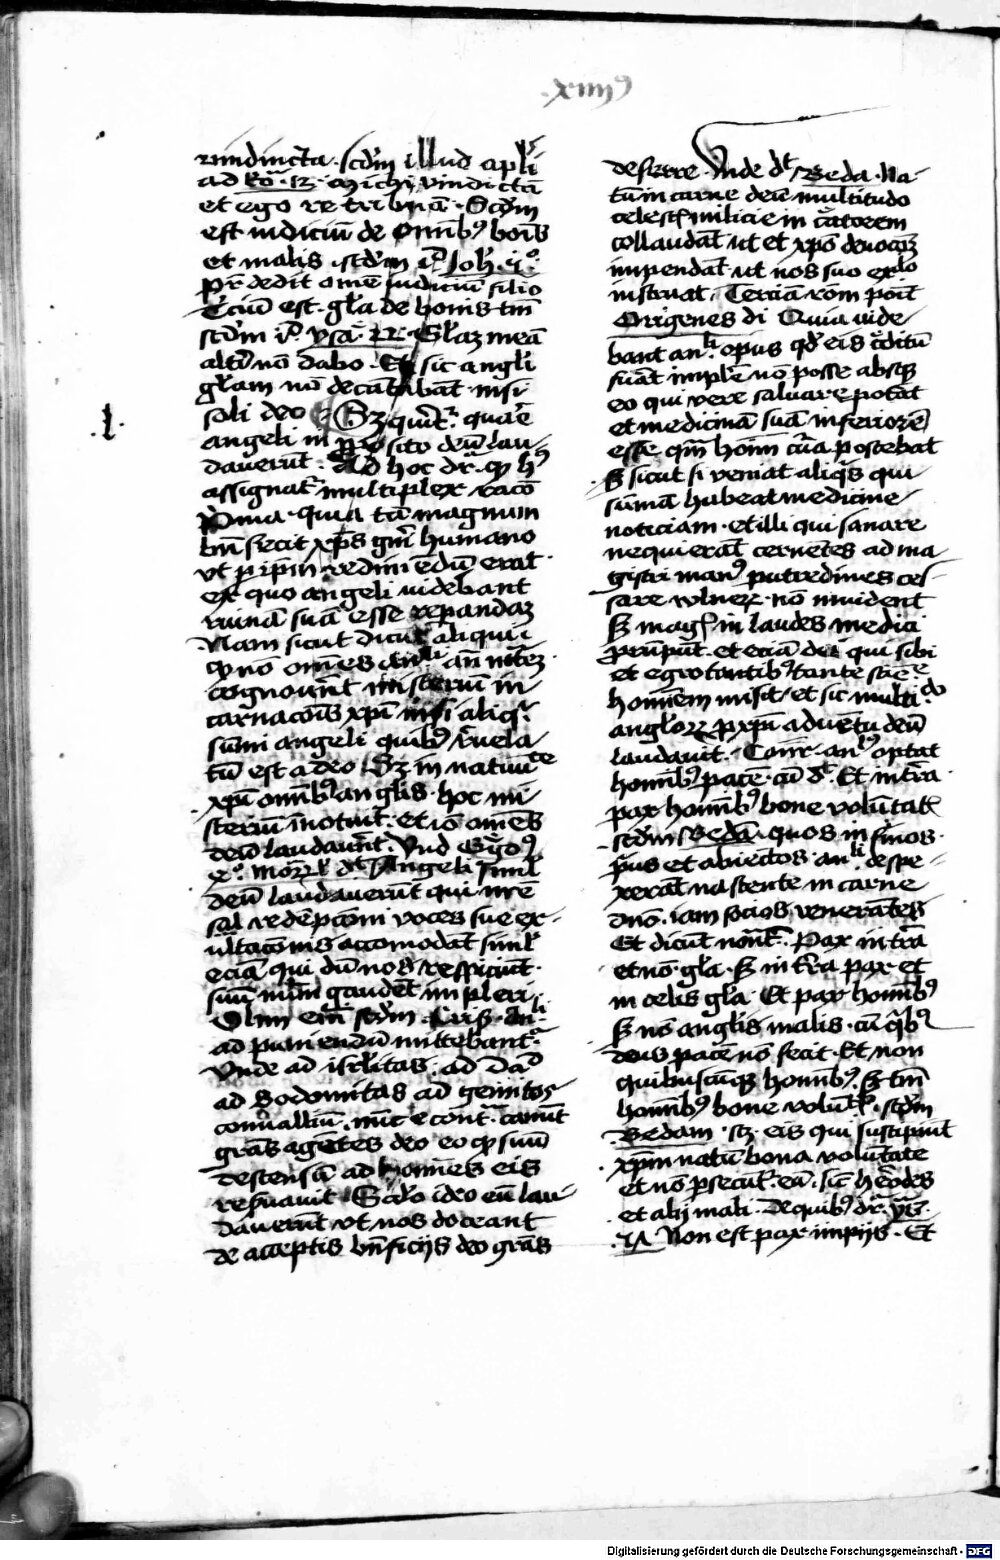 .xiiii⁹
vindicta. scdm illud apli
ad Ro. 12. Michi vindictā
et ego retribuā. Scdm
est iudiciū de omnib⁹ bonis
et malis scdm i͞ Joh. 5.°
Pr̄ dedit om̄e iudiciū filio
Terciū est gl̄a de bonis tm̄
scdm i͞ ysa. 42. Gl̄az meā
alt'i nō dabo. Et sic angl'i
gl̄am nō decātabāt nisi
soli deo Sz quir̄. quare
.1.
angeli in p̄posito deū lau-
daverūt. Ad hoc dr̄. q h⁹
assignat̄ multiplex racō
Prima. quia tā magnum
bn̄ fecit xp̄s gn̄i humano
vt p ip̄m redimēdū erat.
ex quo angeli videbant
ruinā suā esse repandaz
Nam sicut dicūt aliqui
q nō om̄es an̄li an̄ nr̄ez
cognoverūt misteriū in-
carnacōis xp̄i nisi aliq̄
sūmi angeli quib⁹ revela-
tū est a deo. Sz in nativite
xp̄i omīb⁹ anglis hoc mi-
steriū īnotuit. et iō om̄es
deū laudaverūt. Vnd Gg̊o⁹
2°. Moral' dt Angeli siml'
deū laudaverūt qui nr̄e
sal redempcōni voces sue ex-
ultacōnis accomodāt siml'
eciā qui dū nos respiciūt.
suū nūm gaudēt impleri
Olim eīm scdm Cris. an̄li
ad puniendū mittebant'
Vnde ad isrl'itas. ad Dad
ad Sodomitas ad genitos
convalliū. nūc e cont̄. canūt
grās agētes deo eo q suū
descensū ad homīes eis
reservavit Scdo ideo eū lau-
daverūt vt nos doceant
de acceptis bn̄ficijs deo grās
deferre. Vnde dt Beda. Na-
tū in carne deū multitudo
celestis milicie in creatorem
collaudat. ut et xpō devocōz
impendat. ut nos suo exlo
instruat. Terciā rōm ponit
Origenes di Quia vide-
bant an̄li opus qd eis cr̄ditū
fuāt implē nō posse absq
eo qui vere salvare potāt
et medicinā suā inferiorē
esse qm homī cūa postebat
S sicut si veniat aliq̄s qui
sūmā habeat medicine
noticiam. et illi qui sanare
nequierāt cernētes ad ma-
gistri man⁹ putredines ces-
sare vlner. nō invident
S mag' in laudes medici
prūpūt. et eciā dei qui sibi
et egrotantib⁹ tante scie
hominem misit. et sic multido
anglor p xpi adventū deū
laudavit. Cont̄ an̄l⁹ optat
homīb⁹ pacē. cū d'. Et in t̄ra
pax homīb⁹ bone volūtat'
scdm Bedā. quos infirmos
p̄us et abiectos an̄li despe-
xerāt nascente in carne
dn̄o. iam socios venerātes
Et dicūt nōnt'. Pax in t̄ra
et nō gl̄a. S in t̄ra pax et
in celis gl̄a. Et pax homīb⁹
S nō anglis malis. cū q̄b⁹
deus pacē nō fecit. Et non
quibuscūq homīb⁹. S tm̄
homīb⁹ bone volūt'. scdm
Bedam. sz. eis qui suscipiūt
xp̄m natū bona volūtate
et nō psecut'. eū. sic herodes
et alij mali. De quib⁹ dr̄. ys.
57 Non est pax impijs. Et
Digitalisierung gefördert durch die Deutsche Forschungsgemeinschaft - DFG